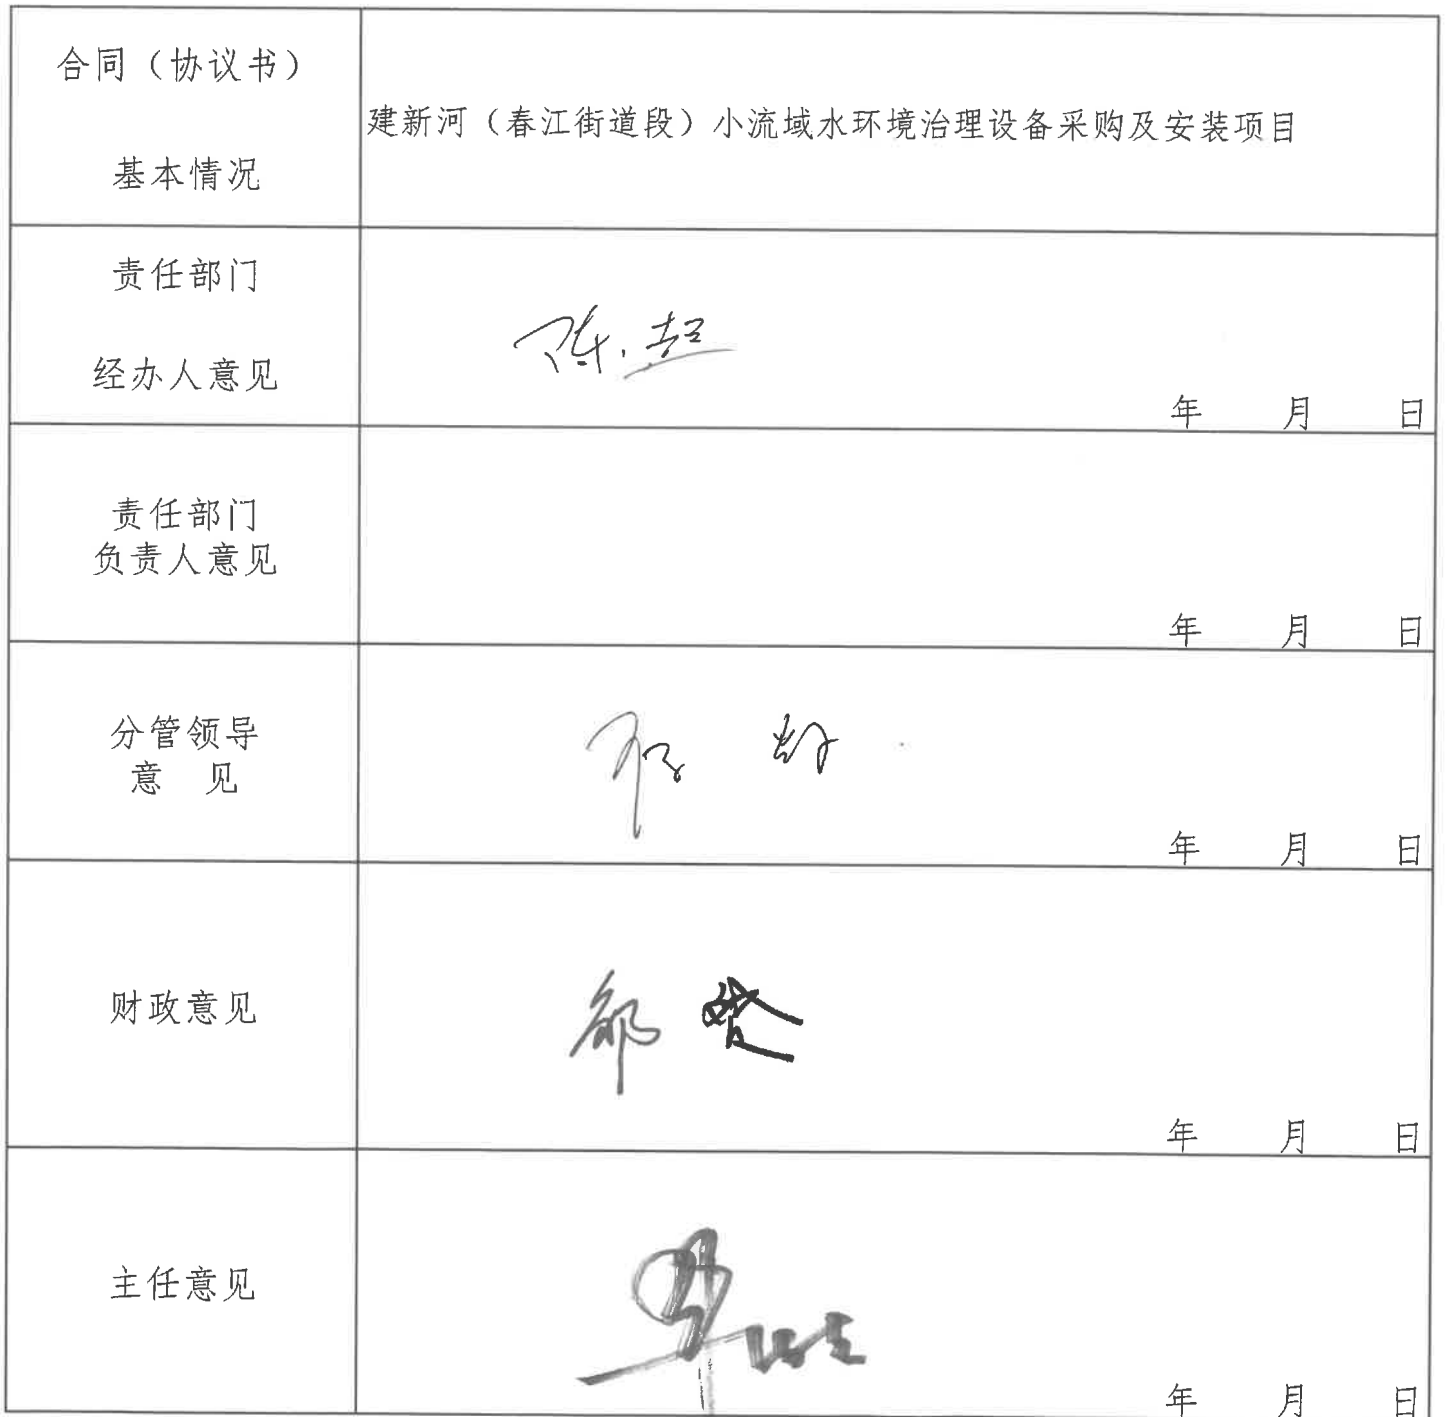 合同（协议书）
基本情况
建新河（春江街道段）小流域水环境治理设备采购及安装项目
责任部门
经办人意见
陈超
年 月 日
责任部门
负责人意见
年 月 日
分管领导
意 见
年 月 日
财政意见
年 月 日
主任意见
年 月 日